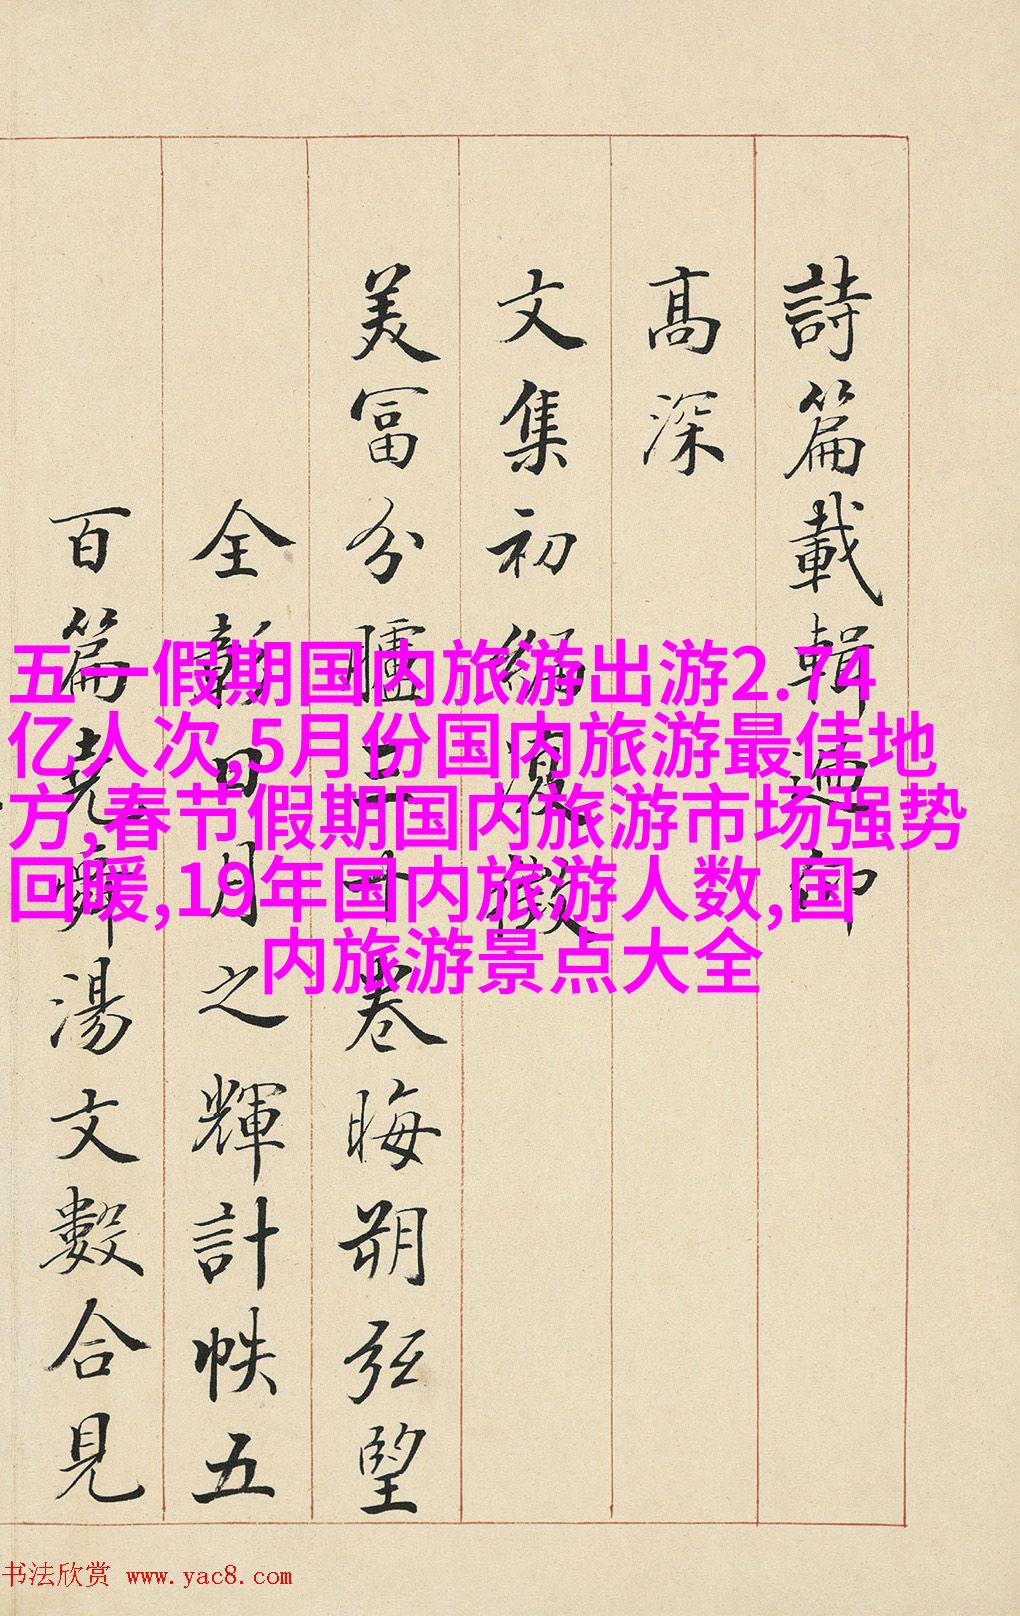 詩篇載輯遍仰
高深
文集初編復綴
美富分臚三廿卷晦朔弦望
全彰日月之輝計帙五
百篇堯舜湯文數合見
五一假期国内旅游出游2.74
亿人次,5月份国内旅游最佳地
方,春节假期国内旅游市场强势
回暖,19年国内旅游人数,国
内旅游景点大全
书法欣赏 www.yac8.com